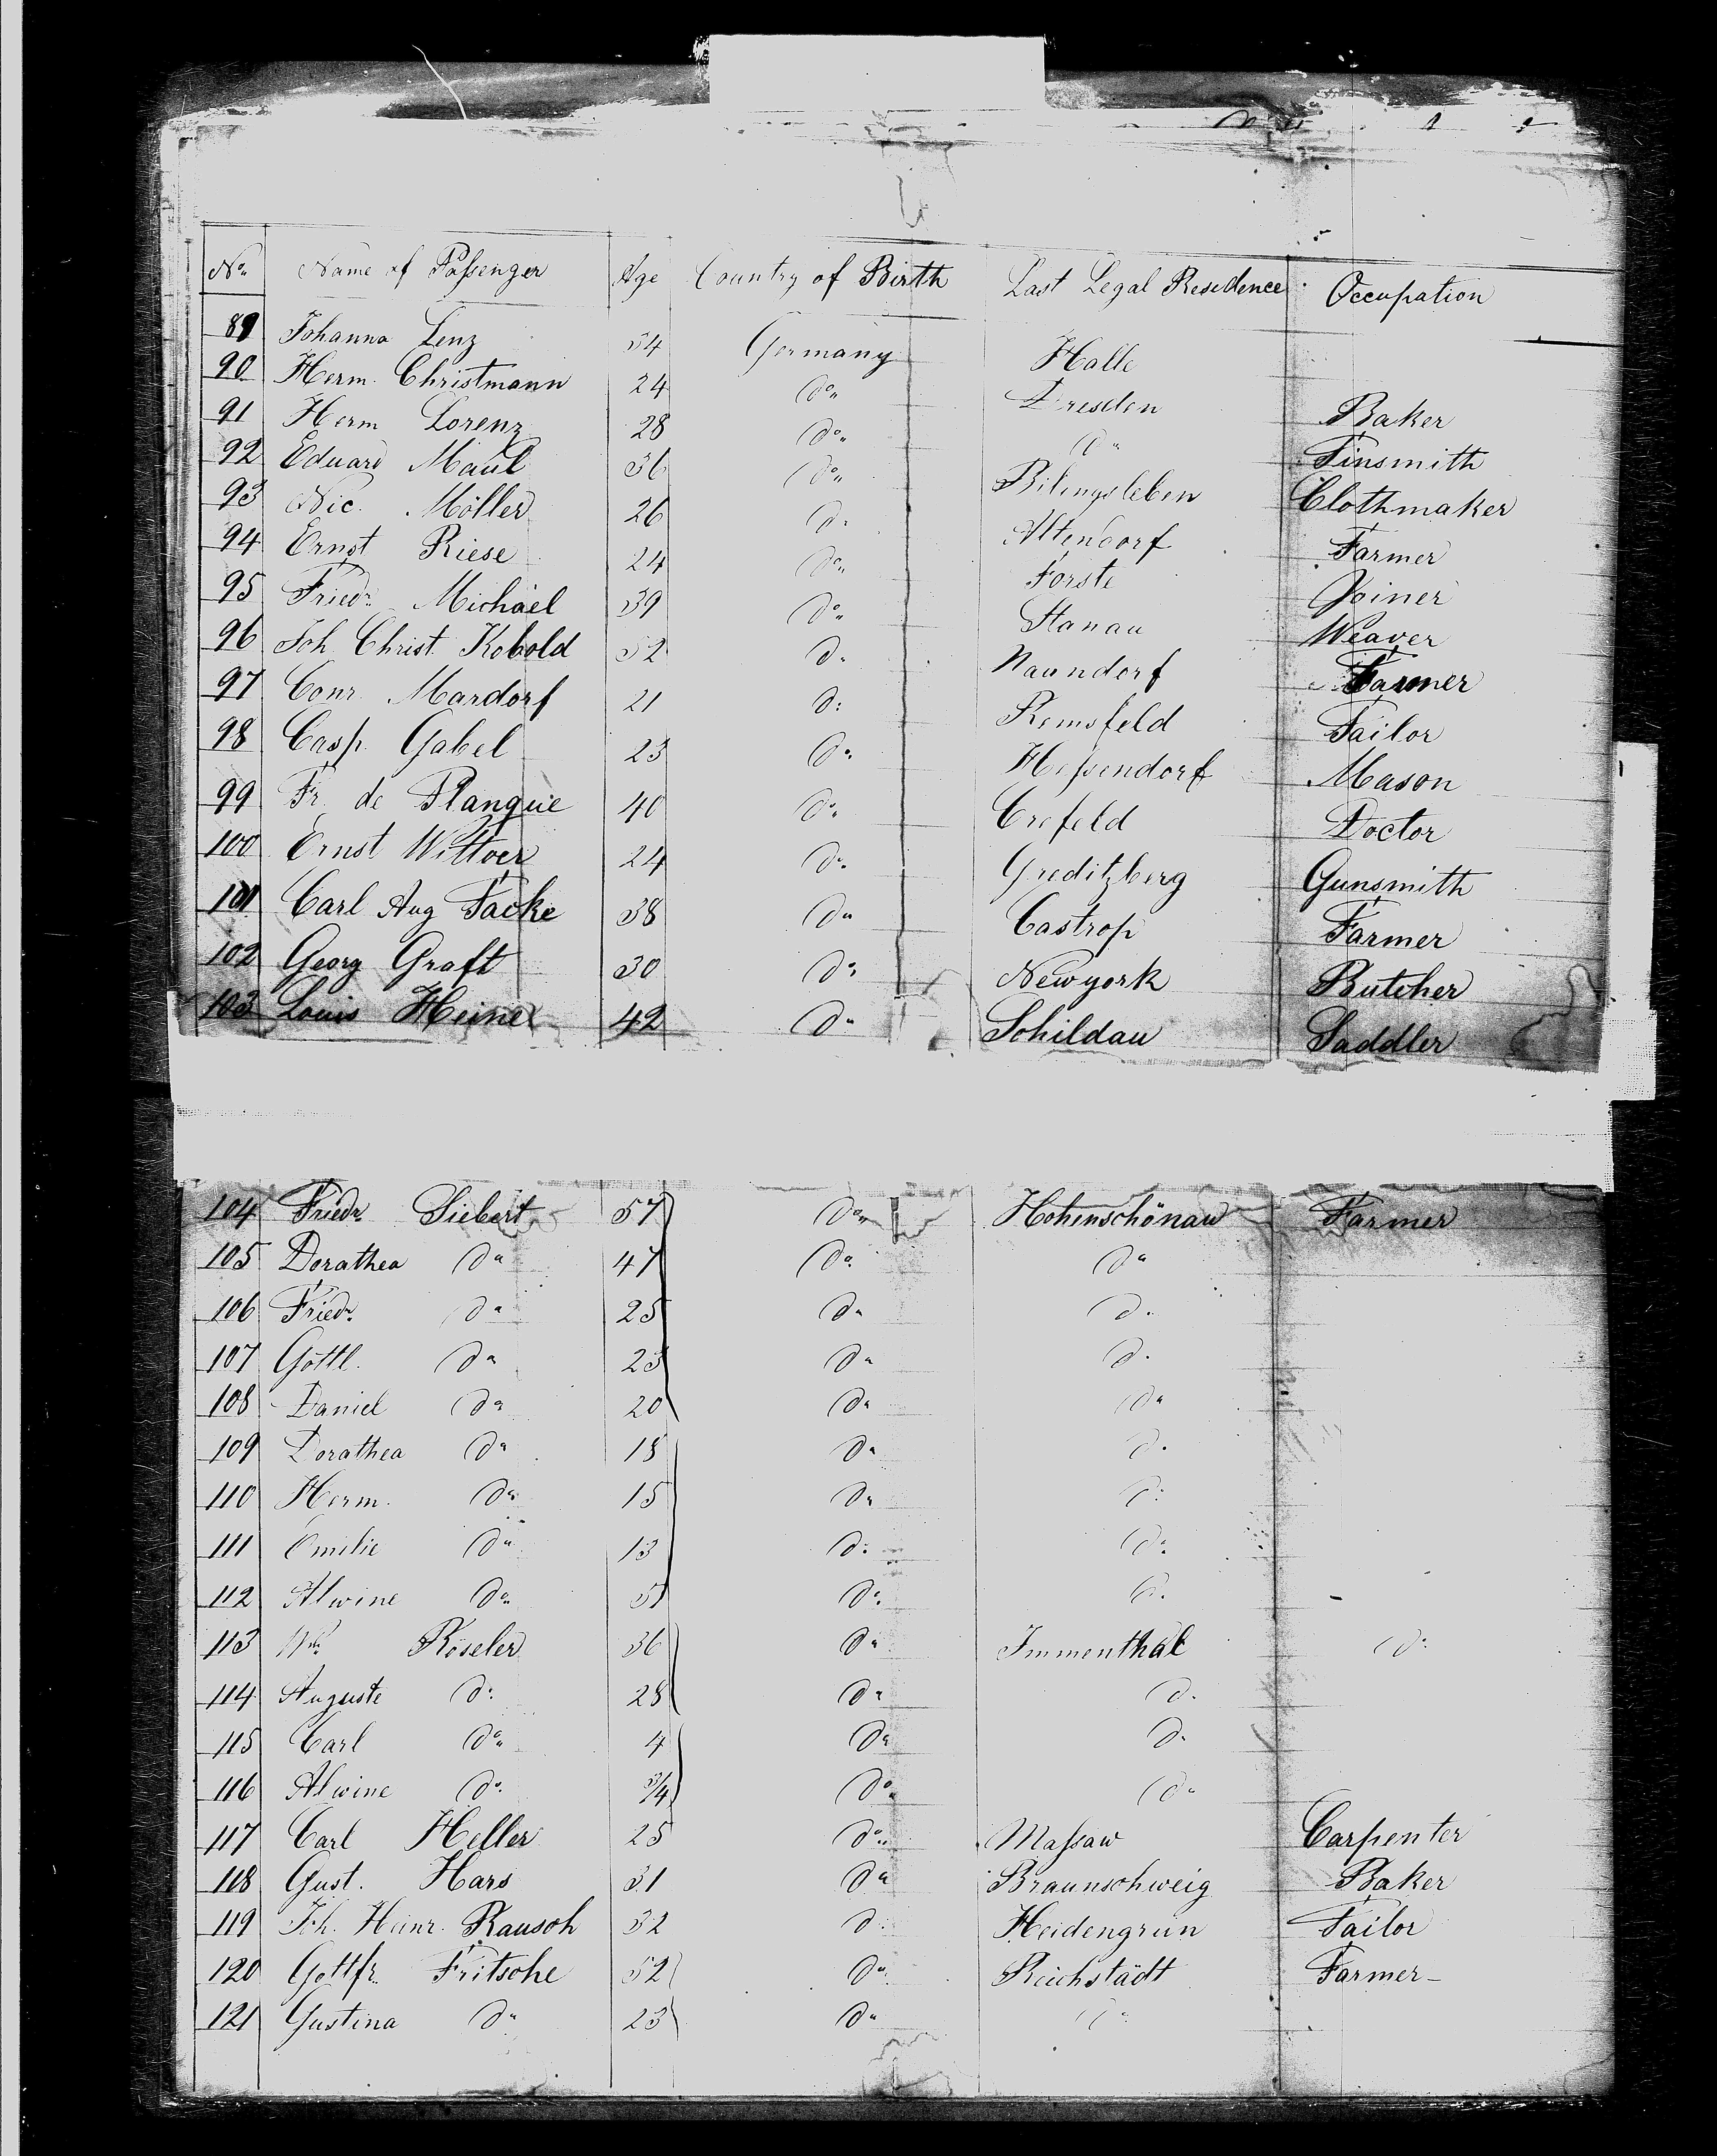 No. Name of Passenger Age Country of Birth Last Legal Residence Occupation
89 Johanna Lenz 54 Germany Halle
90 Herm. Christmann 24 do. Dresden Baker
91 Herm Lorenz 28 do. do. Tinsmith
92 Eduard Maul 36 do. Bilingsleben Clothmaker
93 Nic. Möller 26 do. Altendorf Farmer
94 Ernst Riese 24 do. Forste Joiner
95 Friedr. Michael 39 do. Hanau Weaver
96 Joh. Christ. Kobold 52 do. Naundorf Farmer
97 Conr. Mardorf 21 do. Remsfeld Tailor
98 Casp. Gabel 23 do. Hessendorf Mason
99 Fr. de Planque 40 do. Crefeld Doctor
100 Ernst Wittver 24 do. Greditzberg Gunsmith
101 Carl Aug Tacke 38 do. Castrop Farmer
102 Georg Graft 30 do. Newyork Butcher
103 Louis Heine 42 do. Schildau Saddler
104 Friedr. Siebert 57 do. Hohenschönau Farmer
105 Dorathea do. 47 do. do.
106 Friedr. do. 25 do. do.
107 Gottl. do. 23 do. do.
108 Daniel do. 20 do. do.
109 Dorathea do. 18 do. do.
110 Herm. do. 15 do. do.
111 Emilie do. 13 do. do.
112 Alwine do. 5 do. do.
113 Wm. Röseler 36 do. Immenthal do.
114 Auguste do. 28 do. do.
115 Carl do. 4 do. do.
116 Alwine do. 3/4 do. do.
117 Carl Heller 25 do. Massaw Carpenter
118 Gust. Hars 31 do. Braunschweig Baker
119 Joh. Heinr. Rausch 32 do. Heidengrun Tailor
120 Gottfr. Fritsche 52 do. Reichstädt Farmer
121 Gustina do. 23 do. do.